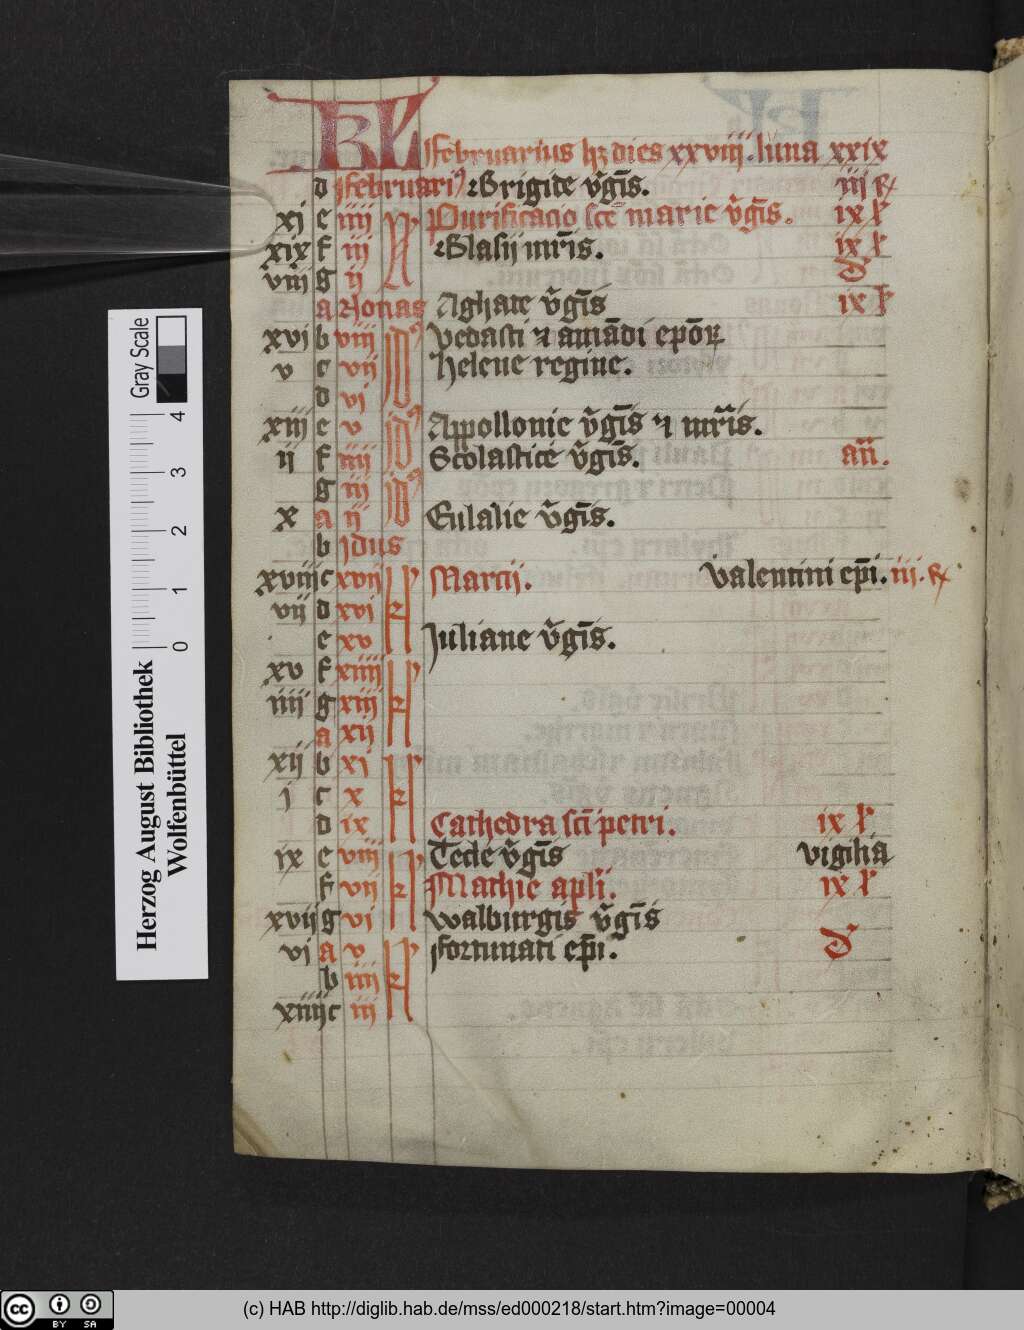 KL Februarius hꝫ dies xxviij. luna xxix
d Februariꝰ Brigide v̄gīs. iij ꝶ
xj e iiij Nꝰ Purificacio sce̅ marie v̄gīs. ix l
xix f iij Blasij mr̄is. ix l
viij g ij
a Nonas Aghate v̄gīs ix l
xvj b viij jdꝰ Vedasti ⁊ amādi epōꝝ
v c vij Helene regine.
d vi jdꝰ
xiij e v Appollonie v̄gīs ⁊ mr̄is.
ij f iiij Scolastice v̄gīs. an̄.
g iij jdꝰ
x a ij Eulalie v̄gīs.
b jdus
xviij c xvij kl Marcij. Valentini ep̄i. iij. ꝶ
vij d xvi
e xv Juliane v̄gīs.
xv f xiiij kl
iiij g xiij
a xij
xij b xi kl
j c x
d ix Cathedra scī petri. ix l
ix e viij kl Tecle v̄gīs vigilia
f vij Mathie apl̄i. ix l
xvij g vi Walburgis v̄gīs
vi a v kl Fortunati ep̄i.
b iiij
xiiij c iij
Herzog August Bibliothek
Wolfenbüttel
Gray Scale
0 1 2 3 4
cc BY SA
(c) HAB http://diglib.hab.de/mss/ed000218/start.htm?image=00004